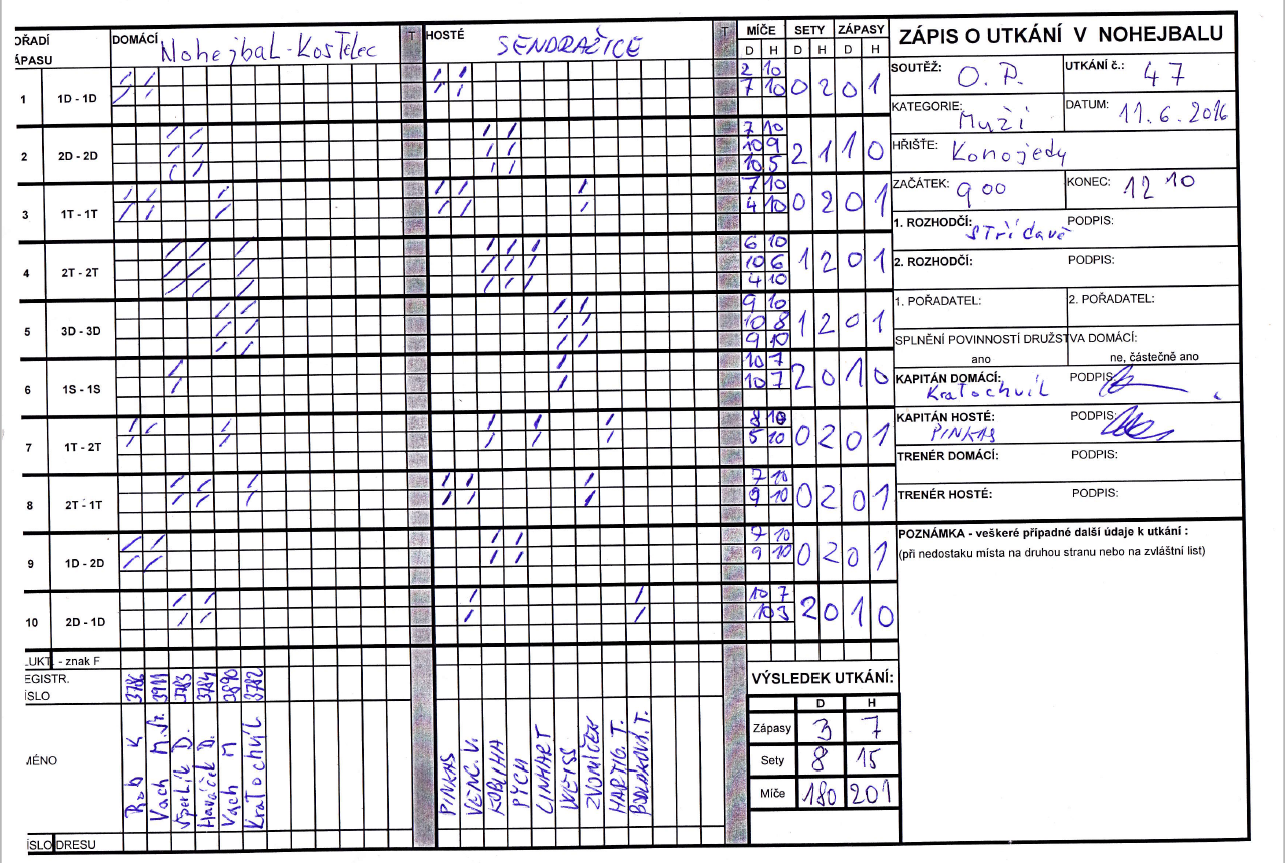 ZÁPIS O UTKÁNÍ V NOHEJBALU
SOUTĚŽ: O. P.
UTKÁNÍ č.: 47
KATEGORIE: Muži
DATUM: 11.6.2016
HŘIŠTE: Konojedy
ZAČÁTEK: 9 00
KONEC: 12 10
1. ROZHODČÍ: STřídavě
PODPIS:
2. ROZHODČÍ:
PODPIS:
1. POŘADATEL:
2. POŘADATEL:
SPLNĚNÍ POVINNOSTÍ DRUŽSTVA DOMÁCÍ:
ano
ne, částečně ano
KAPITÁN DOMÁCÍ: Kratochvíl
PODPIS:
KAPITÁN HOSTÉ: PINKAS
PODPIS:
TRENÉR DOMÁCÍ:
PODPIS:
TRENÉR HOSTÉ:
PODPIS:
POZNÁMKA - veškeré případné další údaje k utkání :
(při nedostaku místa na druhou stranu nebo na zvláštní list)
OŘADÍ
ÁPASU
DOMÁCÍ Nohejbal - Kostelec
T
HOSTÉ SENDRAČICE
T
MÍČE SETY ZÁPASY
D H D H D H
1 1D - 1D
2 10
7 10
0 2 0 1
2 2D - 2D
7 10
10 9
10 5
2 1 1 0
3 1T - 1T
7 10
4 10
0 2 0 1
4 2T - 2T
6 10
10 6
4 10
1 2 0 1
5 3D - 3D
9 10
10 8
9 10
1 2 0 1
6 1S - 1S
10 7
10 7
2 0 1 0
7 1T - 2T
8 10
5 10
0 2 0 1
8 2T - 1T
7 10
9 10
0 2 0 1
9 1D - 2D
7 10
9 10
0 2 0 1
10 2D - 1D
10 7
10 3
2 0 1 0
UKT. - znak F
EGISTR.
ÍSLO
3786 3911 3783 3784 3890 3782
MÉNO
Rob K
Vach M.
D.
Haváček D.
Vach M
Kratochvíl
PINKAS
VENC. V.
PYCH
LINHART
WEISS
HARTIG. T.
ÍSLO DRESU
VÝSLEDEK UTKÁNÍ:
D H
Zápasy 3 7
Sety 8 15
Míče 180 201